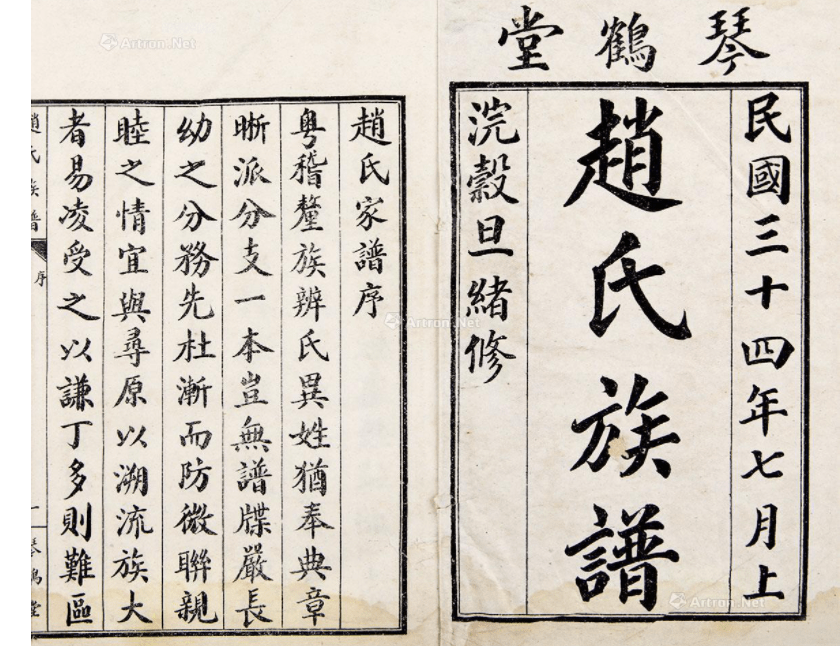 琴鶴堂
民國三十四年七月上
趙氏族譜
浣穀旦緒修
趙氏家譜序
粤稽釐族辨氏異姓猶奉典章
晰派分支一本豈無譜牒嚴長
幼之分務先杜漸而防微聯親
睦之情宜與尋原以溯流族大
者易凌受之以謙丁多則難區
趙氏族譜
序
一
琴鶴堂
Artron.Net
Artron.Net
Artron.Net